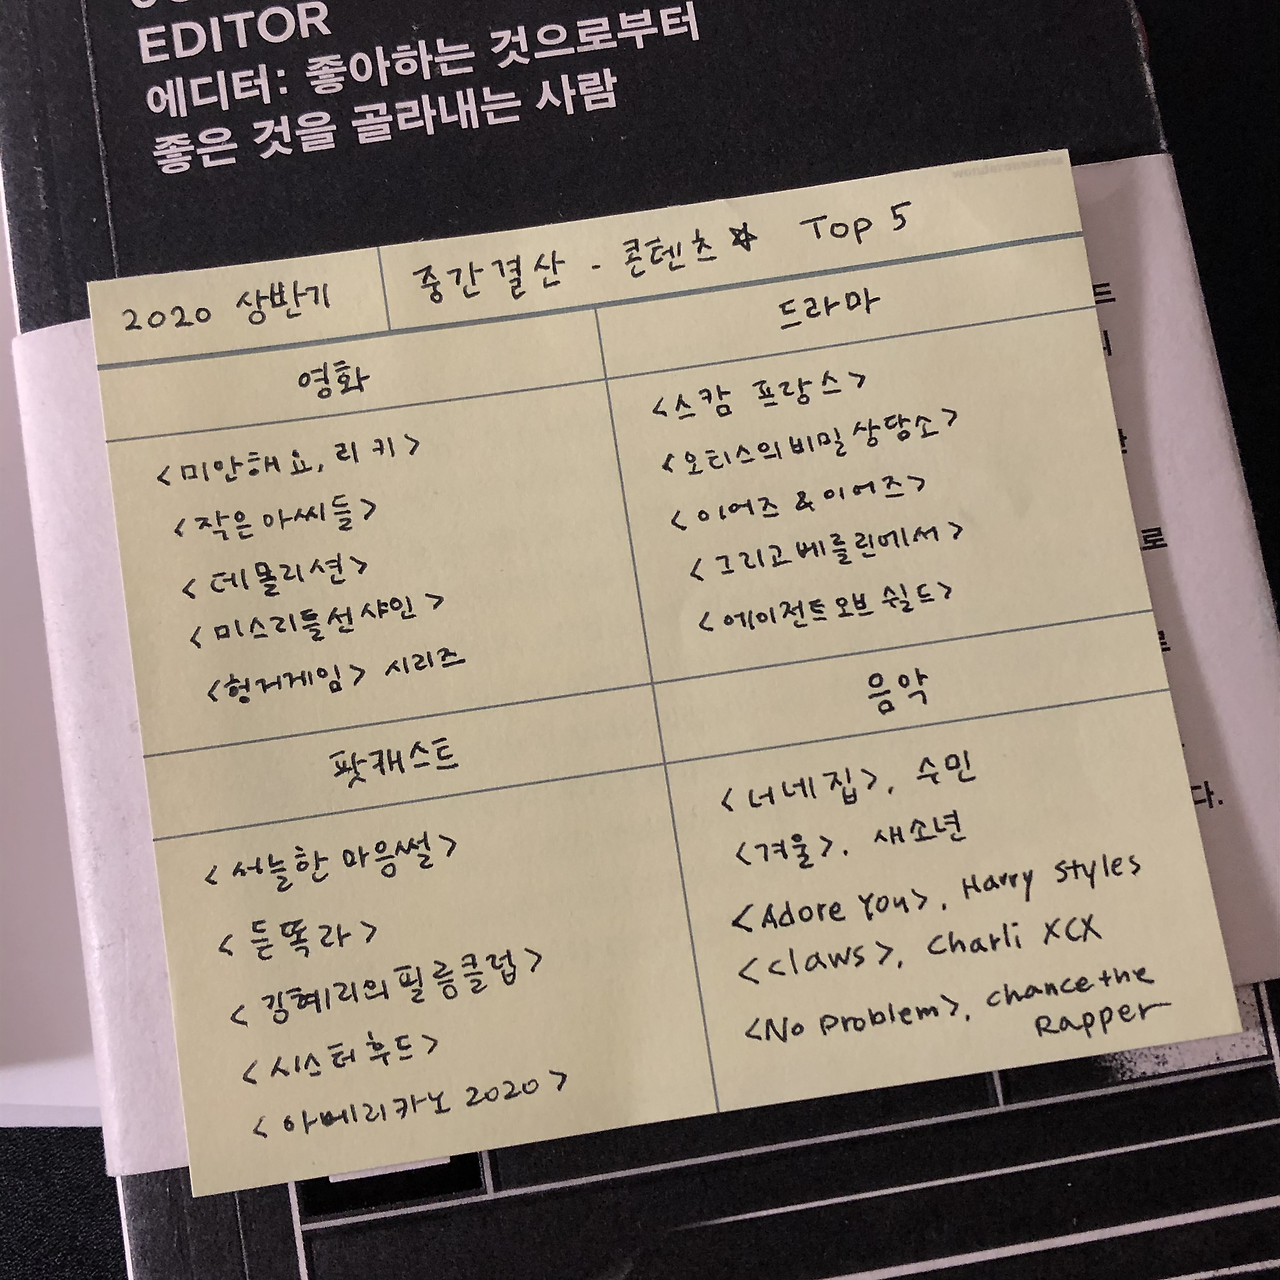 EDITOR
에디터: 좋아하는 것으로부터
좋은 것을 골라내는 사람
2020 상반기
중간결산 - 콘텐츠☆ Top 5
영화
<미안해요, 리키>
<작은아씨들>
<데몰리션>
<미스리틀선샤인>
<헝거게임> 시리즈
드라마
<스캄 프랑스>
<오티스의 비밀 상담소>
<이어즈&이어즈>
<그리고 베를린에서>
<에이전트 오브 쉴드>
팟캐스트
<서늘한 마음썰>
<듣똑라>
<김혜리의 필름클럽>
<시스터후드>
<아메리카노 2020>
음악
<너네 집>, 수민
<겨울>. 새소년
<Adore You>, Harry Styles
<claws>, Charli XCX
<No Problem>, Chance the
Rapper
드
로
다.